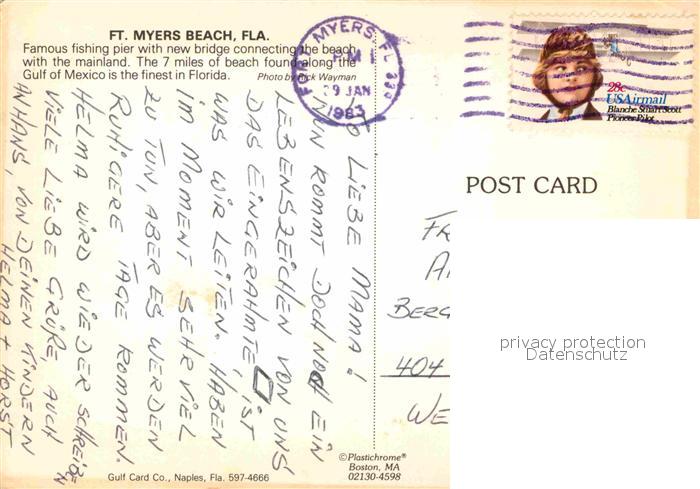 FT. MYERS BEACH, FLA.
Famous fishing pier with new bridge connecting the beach
with the mainland. The 7 miles of beach found along the
Gulf of Mexico is the finest in Florida. Photo by Rick Wayman
LIEBE MAMA!
NUN KOMMT DOCH NOCH EIN
LEBENSZEICHEN VON UNS
DAS EINGERAHMTE IST
WAS WIR LEITEN. HABEN
IM MOMENT SEHR VIEL
ZU TUN, ABER ES WERDEN
RUHIGERE TAGE KOMMEN.
HELMA WIRD WIEDER SCHREIBEN
VIELE LIEBE GRÜßE, AUCH
AN HANS, VON DEINEN KINDERN
HELMA + HORST
FORT MYERS, FL 339
PM
29 JAN
1983
28c
USAirmail
Blanche Stuart Scott
Pioneer Pilot
POST CARD
FR
A
BERG
404
WE
privacy protection
Datenschutz
©Plastichrome®
Boston, MA
02130-4598
Gulf Card Co., Naples, Fla. 597-4666